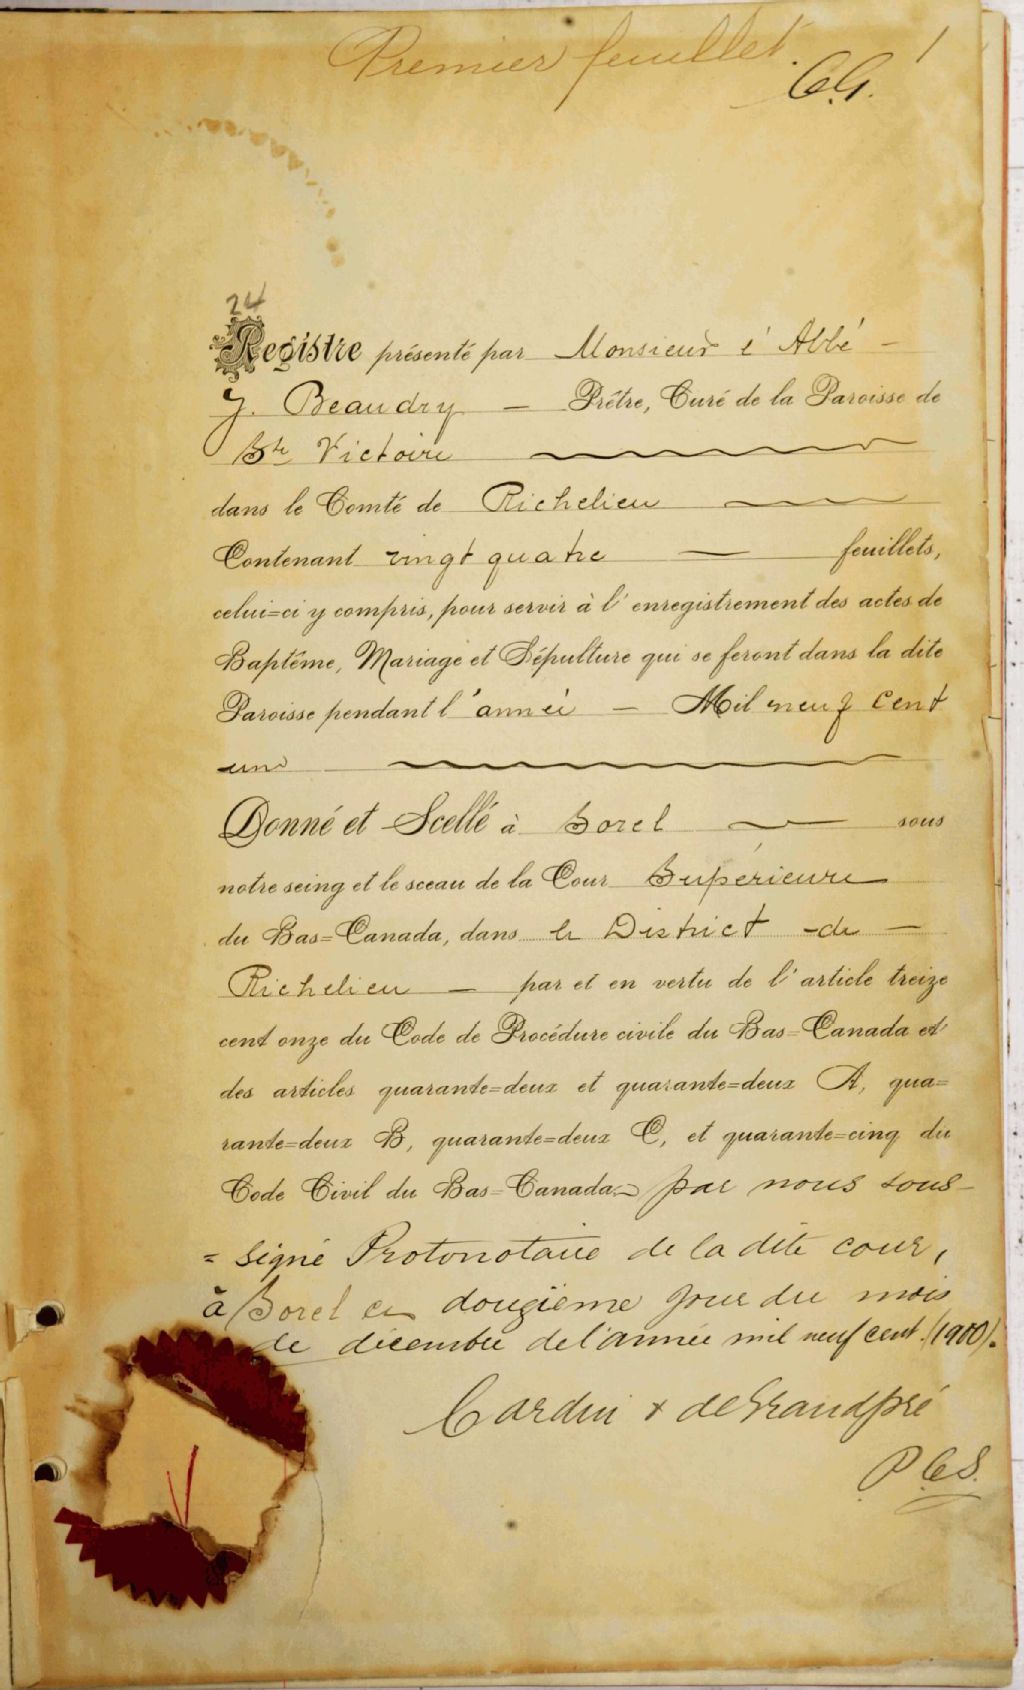 Premier feuillet. 1
C.G.
24
Registre présenté par Monsieur l'Abbé —
J. Beaudry — Prêtre, Curé de la Paroisse de
Ste Victoire
dans le Comté de Richelieu
Contenant vingt quatre — feuillets,
celui=ci y compris, pour servir à l'enregistrement des actes de
Baptême, Mariage et Sépulture qui se feront dans la dite
Paroisse pendant l'année — Mil neuf cent
un
Donné et Scellé à Sorel — sous
notre seing et le sceau de la Cour Supérieure
du Bas=Canada, dans le District de —
Richelieu — par et en vertu de l'article treize
cent onze du Code de Procédure civile du Bas=Canada et
des articles quarante=deux et quarante=deux A, qua=
rante=deux B, quarante=deux C, et quarante=cinq du
Code Civil du Bas=Canada par nous sous-
=signé Protonotaire de la dite cour,
à Sorel ce douzième jour du mois
de décembre de l'année mil neuf cent (1900).
Cardin & deGrandpré
P.C.S.